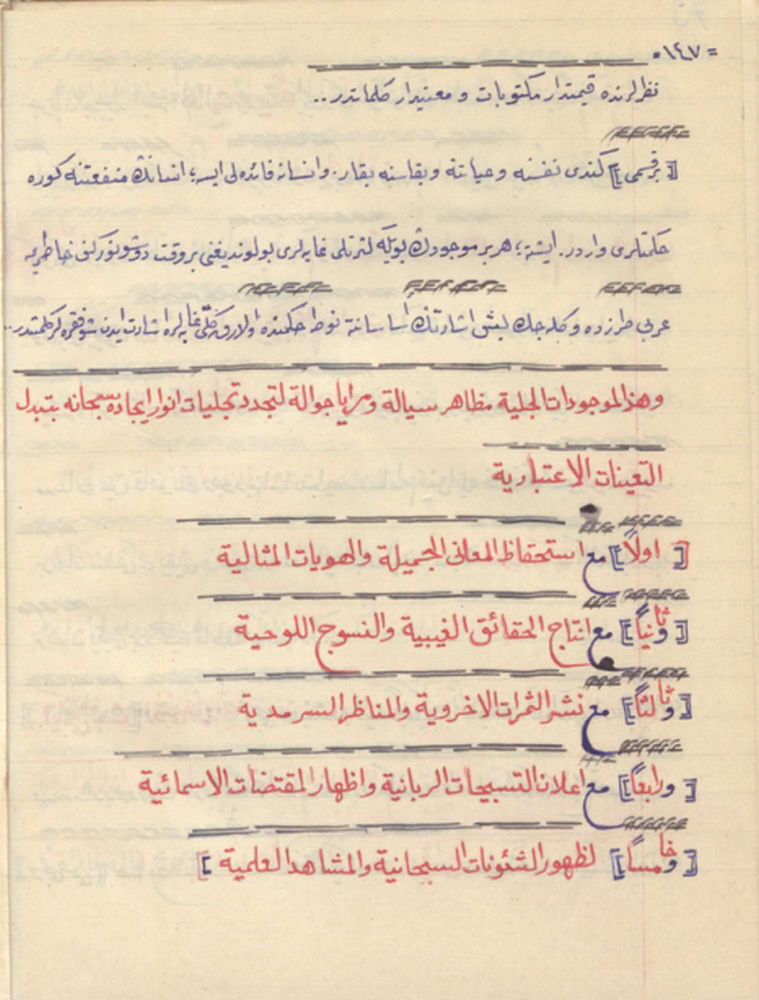 = ١٤٧ =
نظرلرنده قيمتدار مكتوبات و معنيدار كلماتدر..
[ بر قسمى ] كندى نفسنه و حياتنه و بقاسنه بقار. و انسانه فائده‌لى ايسه؛ انسانڭ منفعتنه كوره
حكمتلرى واردر. ايشته؛ هر بر موجودڭ بويله كثرتلى غايه‌لرى بولونديغنى بر وقت دوشونوركن خاطريمه
عربى طرزده و كله‌جك بش اشارتڭ اساساتنه نوطه حكمنده اولارق كلّى غايه‌لره اشارت ايدن شو فقره‌لر كلمشدر..
وهذه الموجودات الجلية مظاهر سيالة ومرايا جوالة لتجدد تجليات انوار ايجاده سبحانه بتبدل
التعينات الاعتبارية
[ اولاً ] مع استحفاظ المعانى الجميلة والهويات المثالية
[ وثانياً ] مع انتاج الحقائق الغيبية والنسوج اللوحية
[ وثالثاً ] مع نشر الثمرات الاخروية والمناظر السرمدية
[ ورابعاً ] مع اعلان التسبيحات الربانية واظهار المقتضات الاسمائية
[ وخامساً ] لظهور الشئونات السبحانية والمشاهد العلمية ]